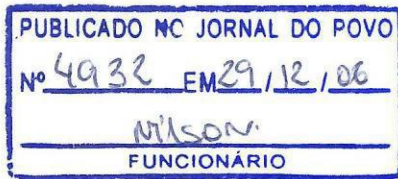 PUBLICADO NO JORNAL DO POVO
Nº 4932 EM 29 / 12 / 06
Nilson.
FUNCIONÁRIO